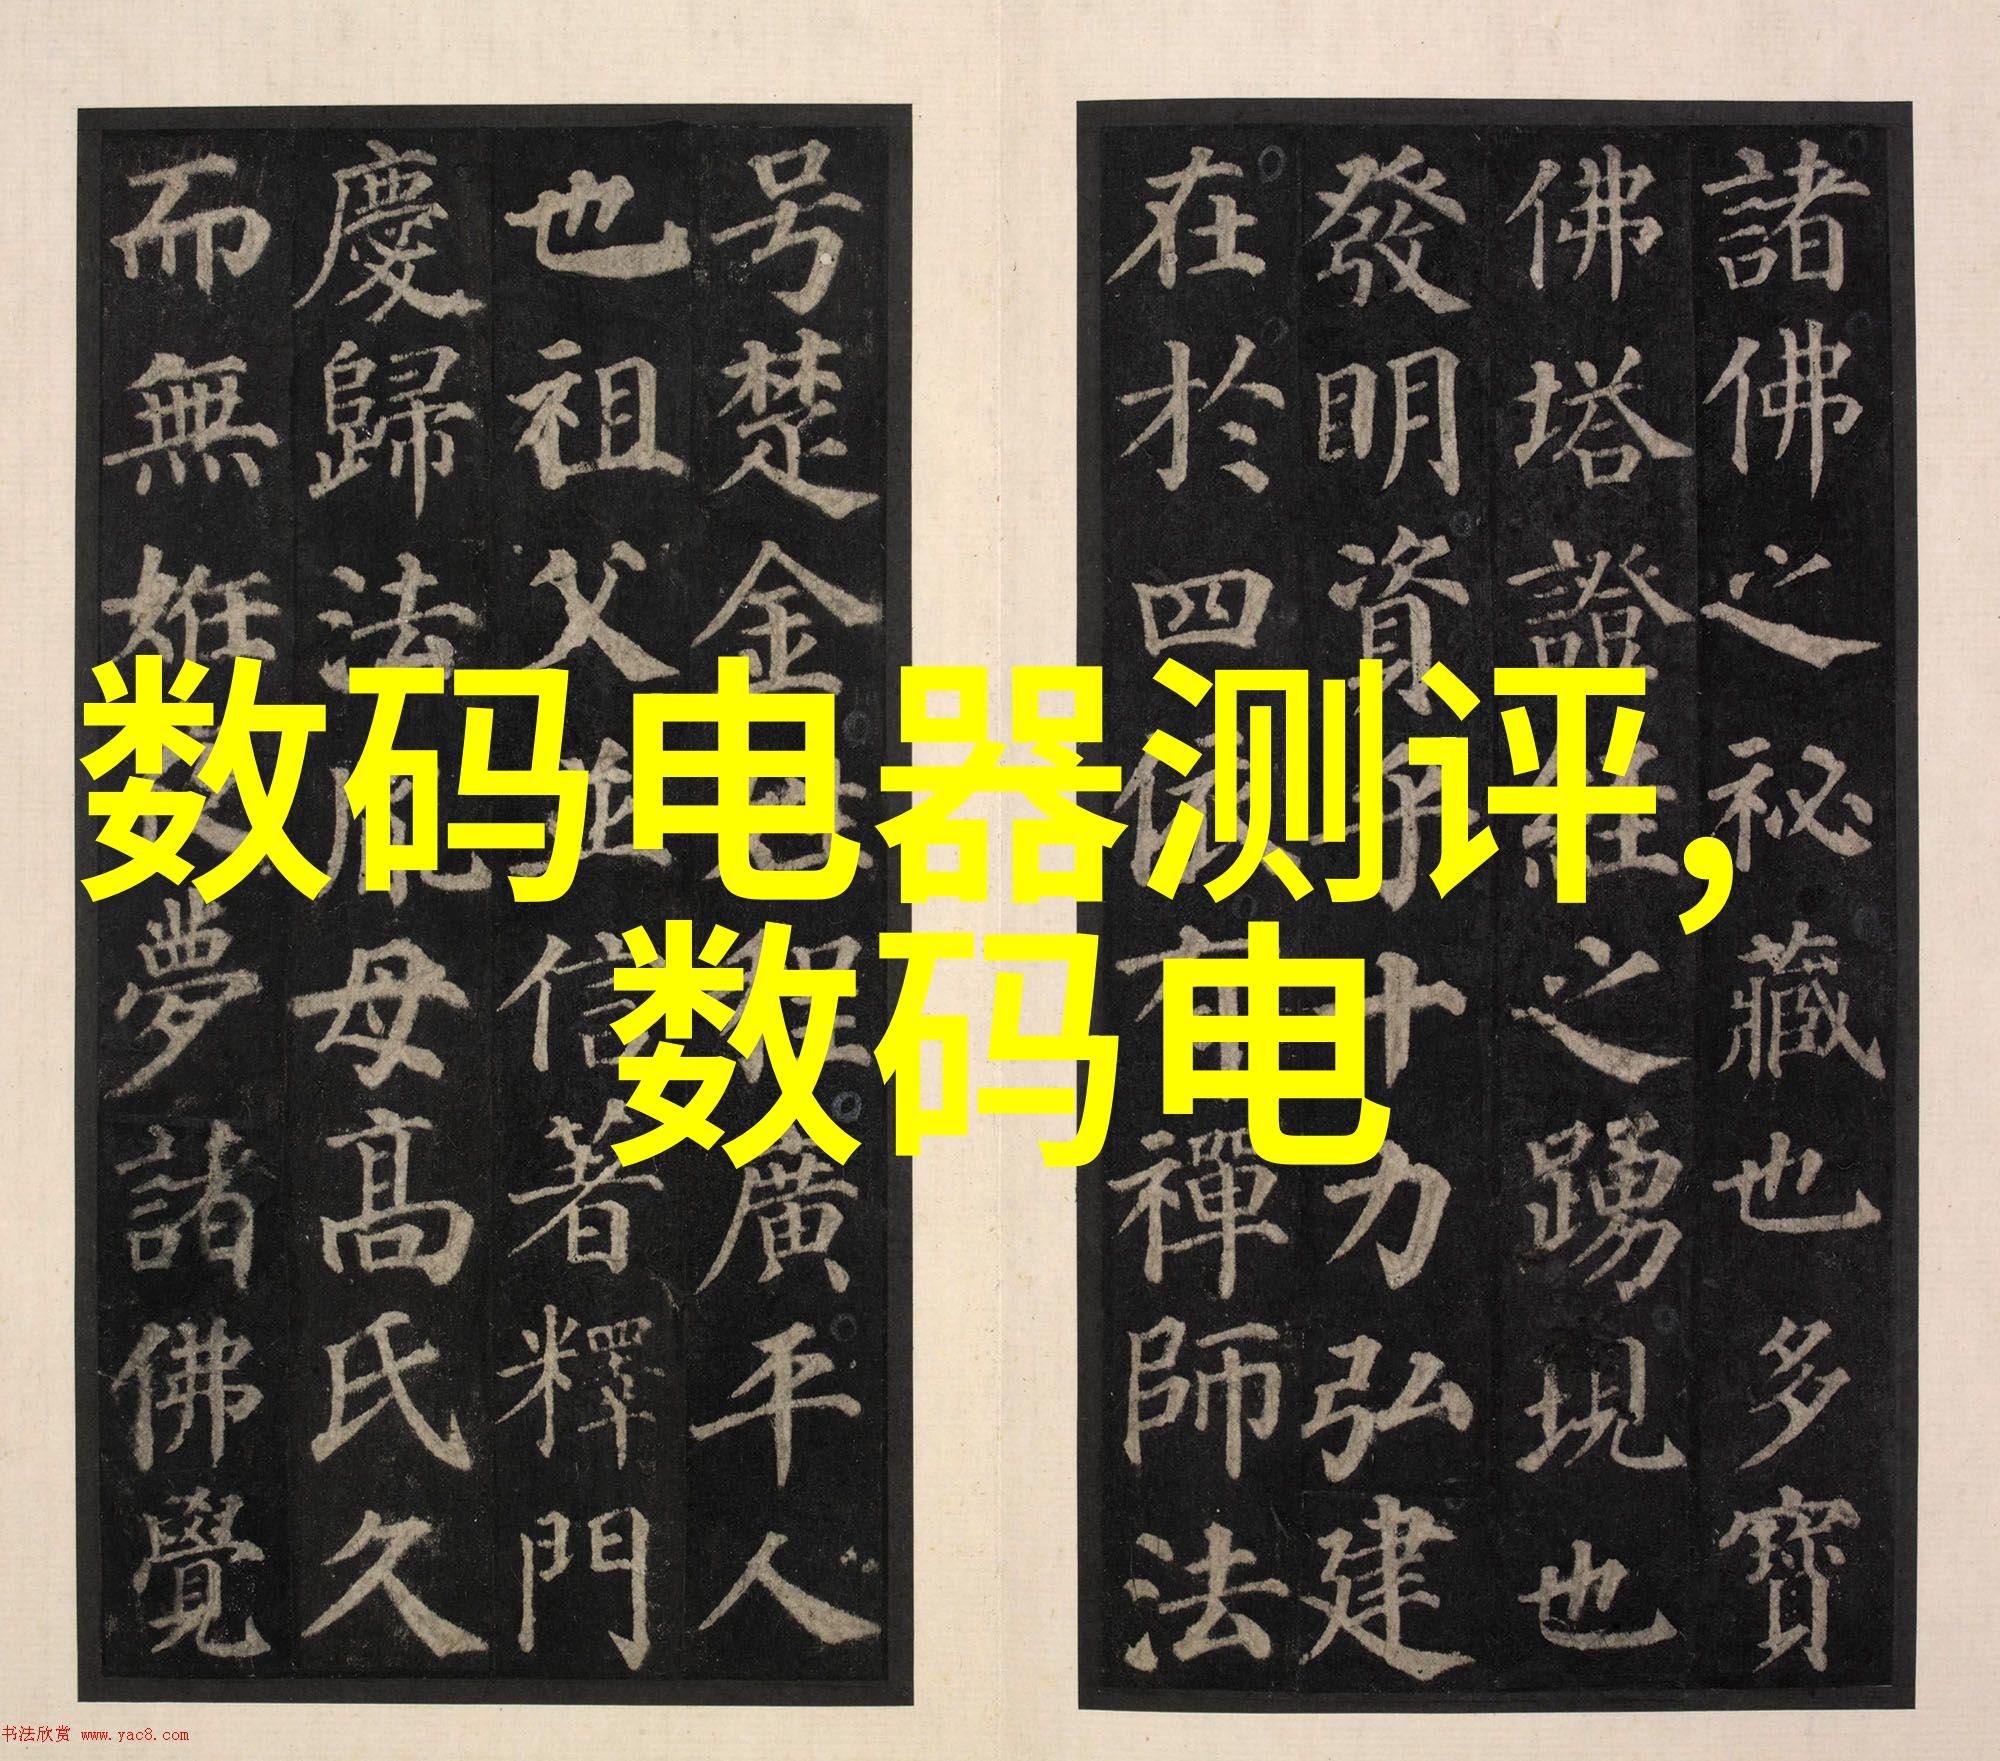 諸佛之祕藏也多寶
佛塔證經之踴現也
發明資乎十力弘建
在於四依有禪師法
号楚金姓程廣平人
也祖父並信著釋門
慶歸法胤母髙氏久
而無姙夜夢諸佛覺
数码电器测评，
数码电
书法欣赏 www.yac8.com